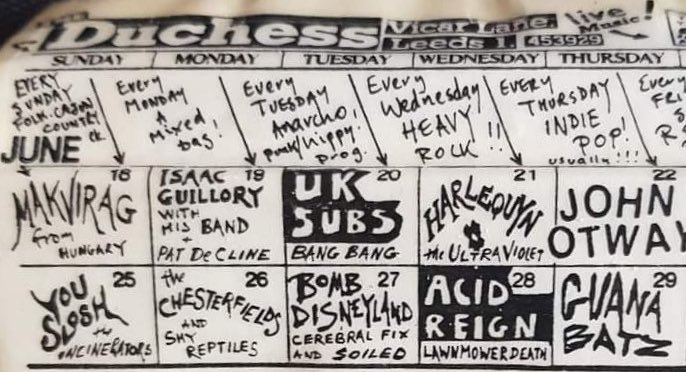 Duchess
Vicar Lane.
Leeds 1. 453929
live
Music!
SUNDAY MONDAY TUESDAY WEDNESDAY THURSDAY
EVERY
SUNDAY
FOLK.CAJUN
COUNTRY
JUNE
Every
MONDAY
A
Mixed
bag!
Every
TUESDAY
Anarcho,
punk/hippy.
prog.
Every
Wednesday
HEAVY
ROCK !!
EVERY
THURSDAY
INDIE
POP!
usually!!!
Every
FRI
18
MAKVIRAG
from
HUNGARY
19
ISAAC
GUILLORY
WITH
HIS BAND
+
PAT DeCLINE
20
UK
SUBS
BANG BANG
21
HARLEQUYN
&
the ULTRAVIOLET
22
JOHN
OTWAY
25
YOU
SLOSH
+
INCINERATORS
26
the
CHESTERFIELDS
AND
SHY
REPTILES
27
BOMB
DISNEYLAND
CEREBRAL FIX
AND SOILED
28
ACID
REIGN
LAWNMOWERDEATH
29
GUANA
BATZ